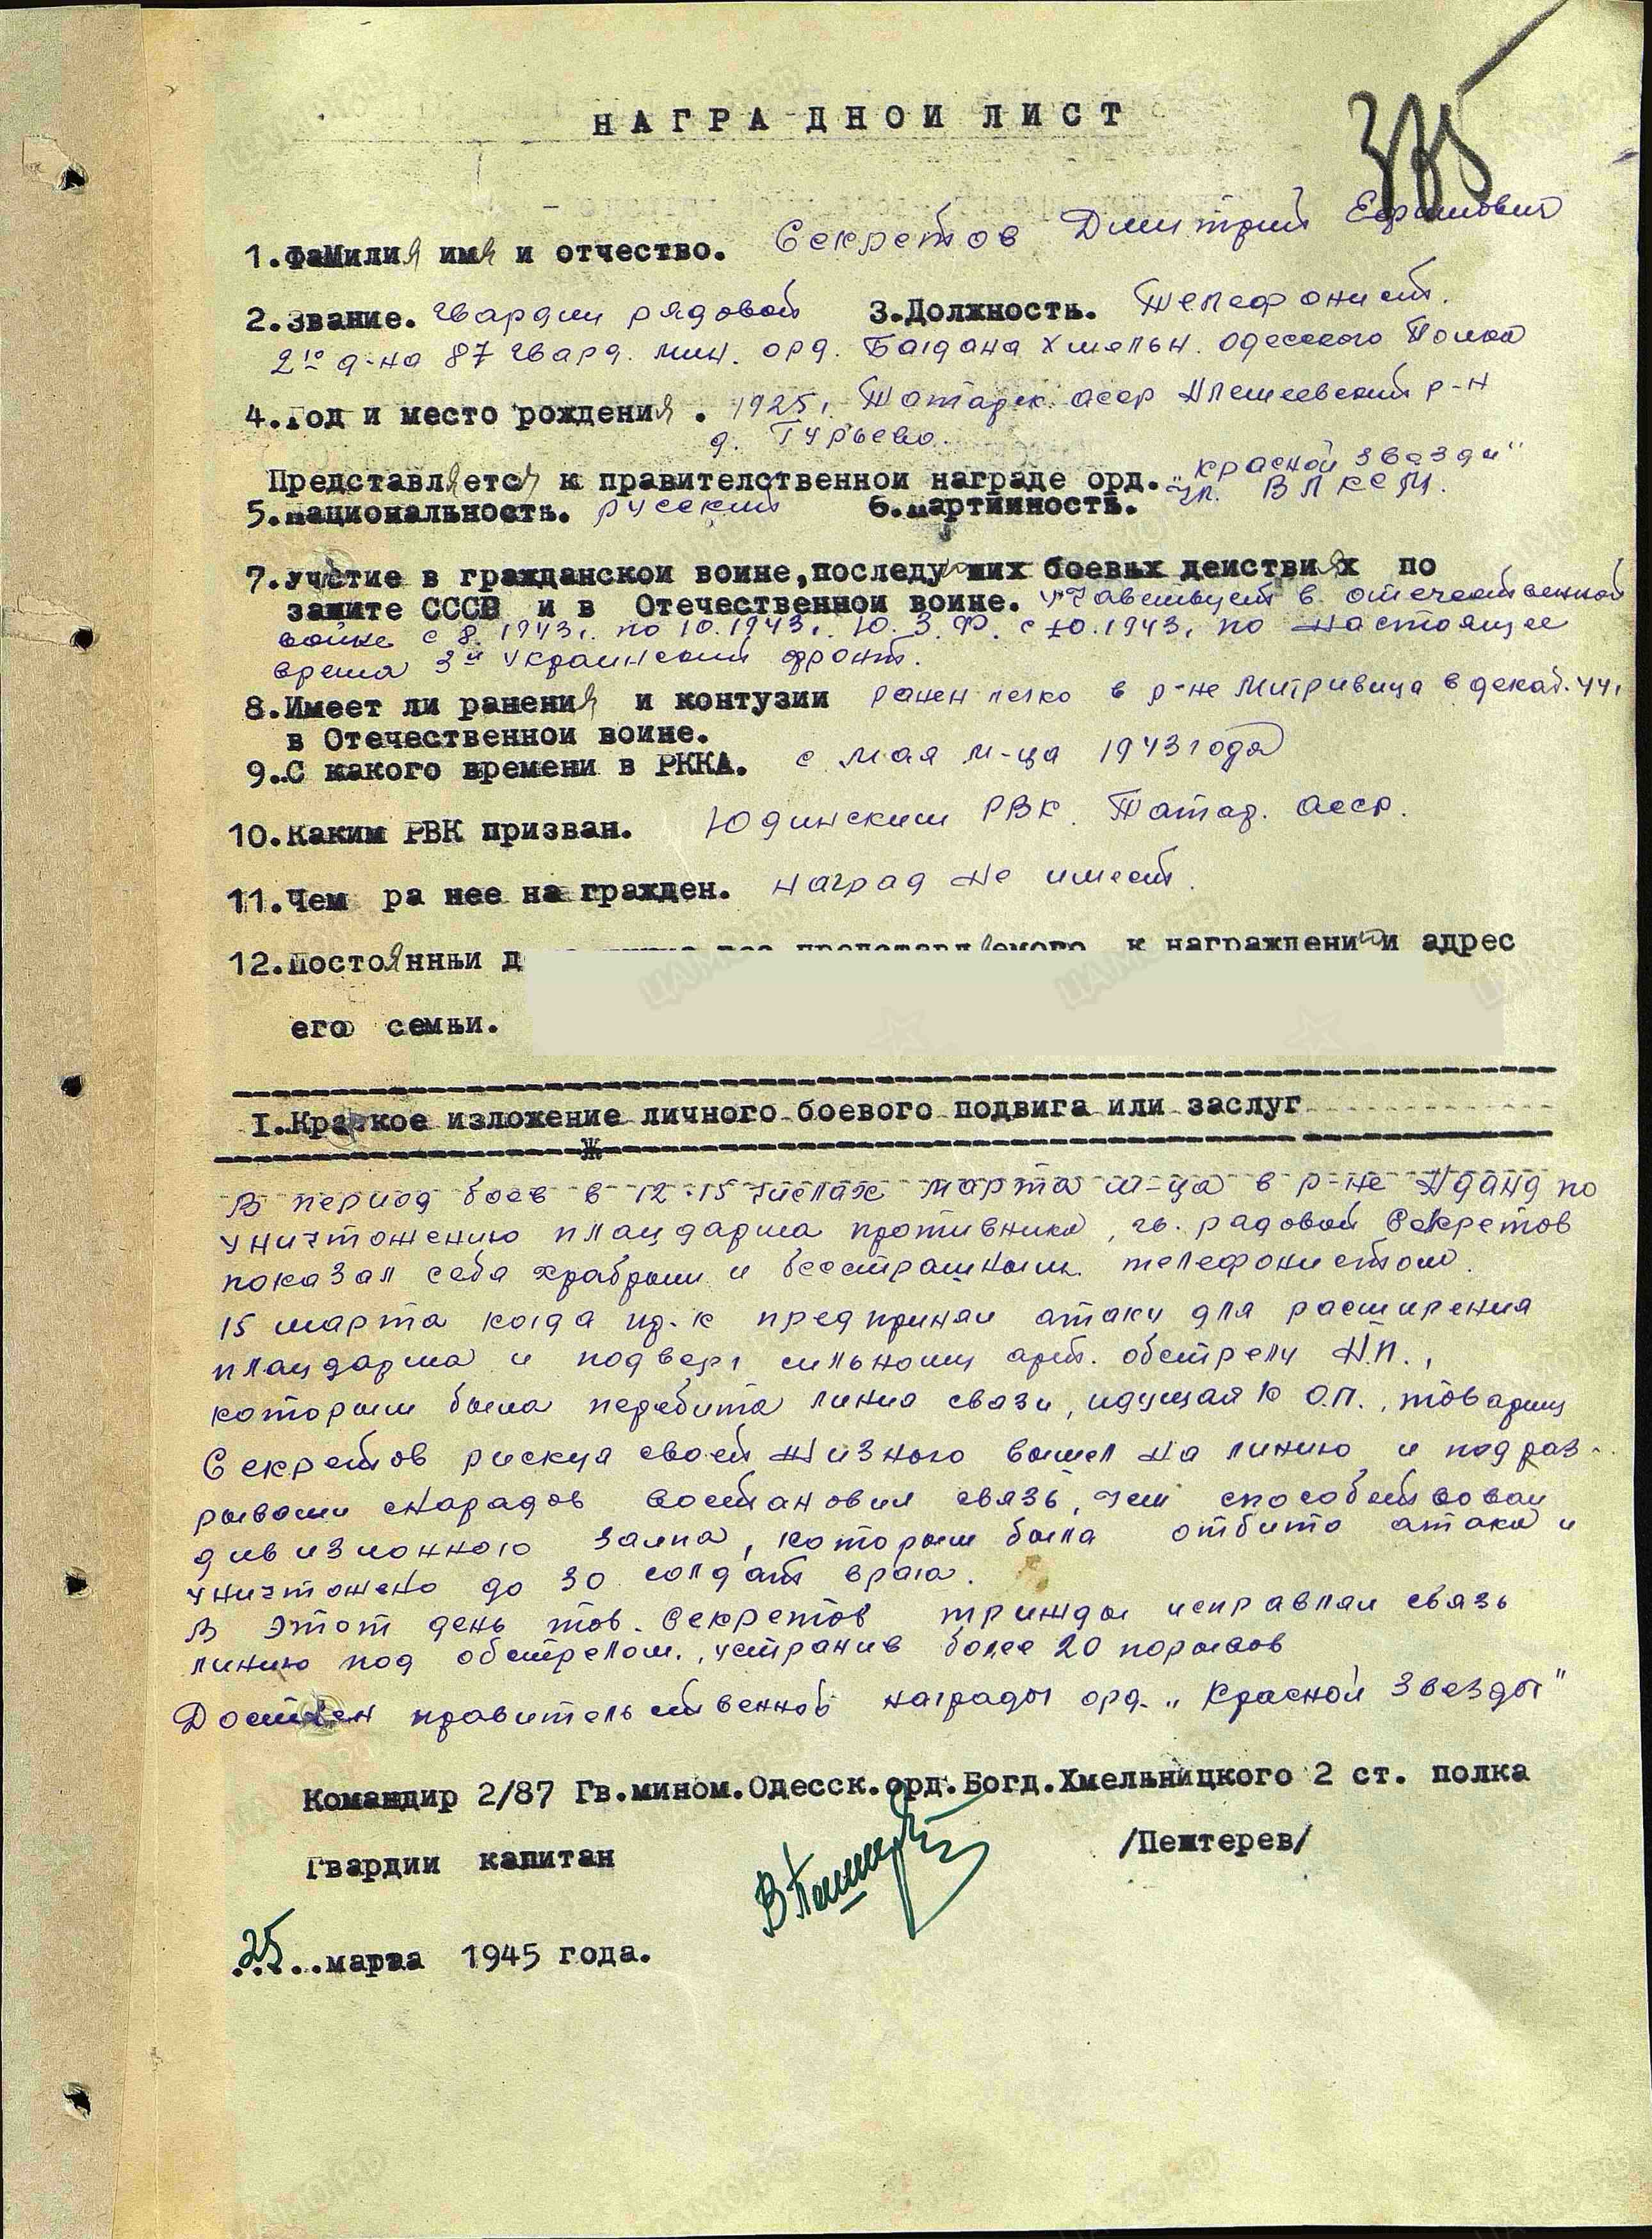 НАГРАДНОИ ЛИСТ
385
1.Фамилия имя и отчество. Секретов Дмитрий
2.Звание. Гвардии рядовой 3.Должность. Телефонист.
2го д-на 87 гвард. мин. орд. Багдана Хмельн. Одесского Полка
4.Год и место рождения . 1925г. Татарск. асср р-н
д. Гурьево.
Представляется к правителственной награде орд. „Красной звезды"
5.Национальность. русский 6.Партийность. чл. ВЛКСМ.
7.Участие в гражданскои воине,последующих боевых деиствиях по
защите СССР и в Отечественнои воине. участвует в отечественной
войне с 8. 1943г. по 10.1943г. Ю.З.Ф. с 10.1943г по настоящее
время 3й Украинский фронт.
8.Имеет ли ранения и контузии ранен легко в р-не Митровица в декаб. 44г
в Отечественнои воине.
9.С какого времени в РККА. с мая м-ца 1943 года
10.Каким РВК призван. Юдинским РВК. Татар. асср.
11.Чем ра нее на гражден. наград не имеет.
12.Постоянныи д представляемого к награждении и адрес
его семьи.
I.Краткое изложение личного боевого подвига или заслуг
Ж
В период боев в 12-15 числах марта м-ца в р-не по
уничтожению плацдарма противника, гв. рядовой Секретов
показал себя храбрым и бесстрашным телефонистом.
15 марта когда пр-к предпринял атаку для расширения
плацдарма и подверг сильному арт. обстрелу Н.П.,
которым была перебита линия связи, идущая к О.П., товарищ
Секретов рискуя своей жизного вышел на линию и под раз-
рывами снарядов востановил связь, чем способствовал
дивизионного залпа, которым была отбита атака и
уничтожено до 30 солдат врага.
В этот день тов. Секретов трижды исправлял связь
линию под обстрелом, устранив более 20 порывов
Достоен правительственной награды орд. „Красной Звезды"
Командир 2/87 Гв.мином.Одесск.орд.Богд.Хмельницкого 2 ст. полка
Гвардии капитан /Пештерев/
25 марта 1945 года.